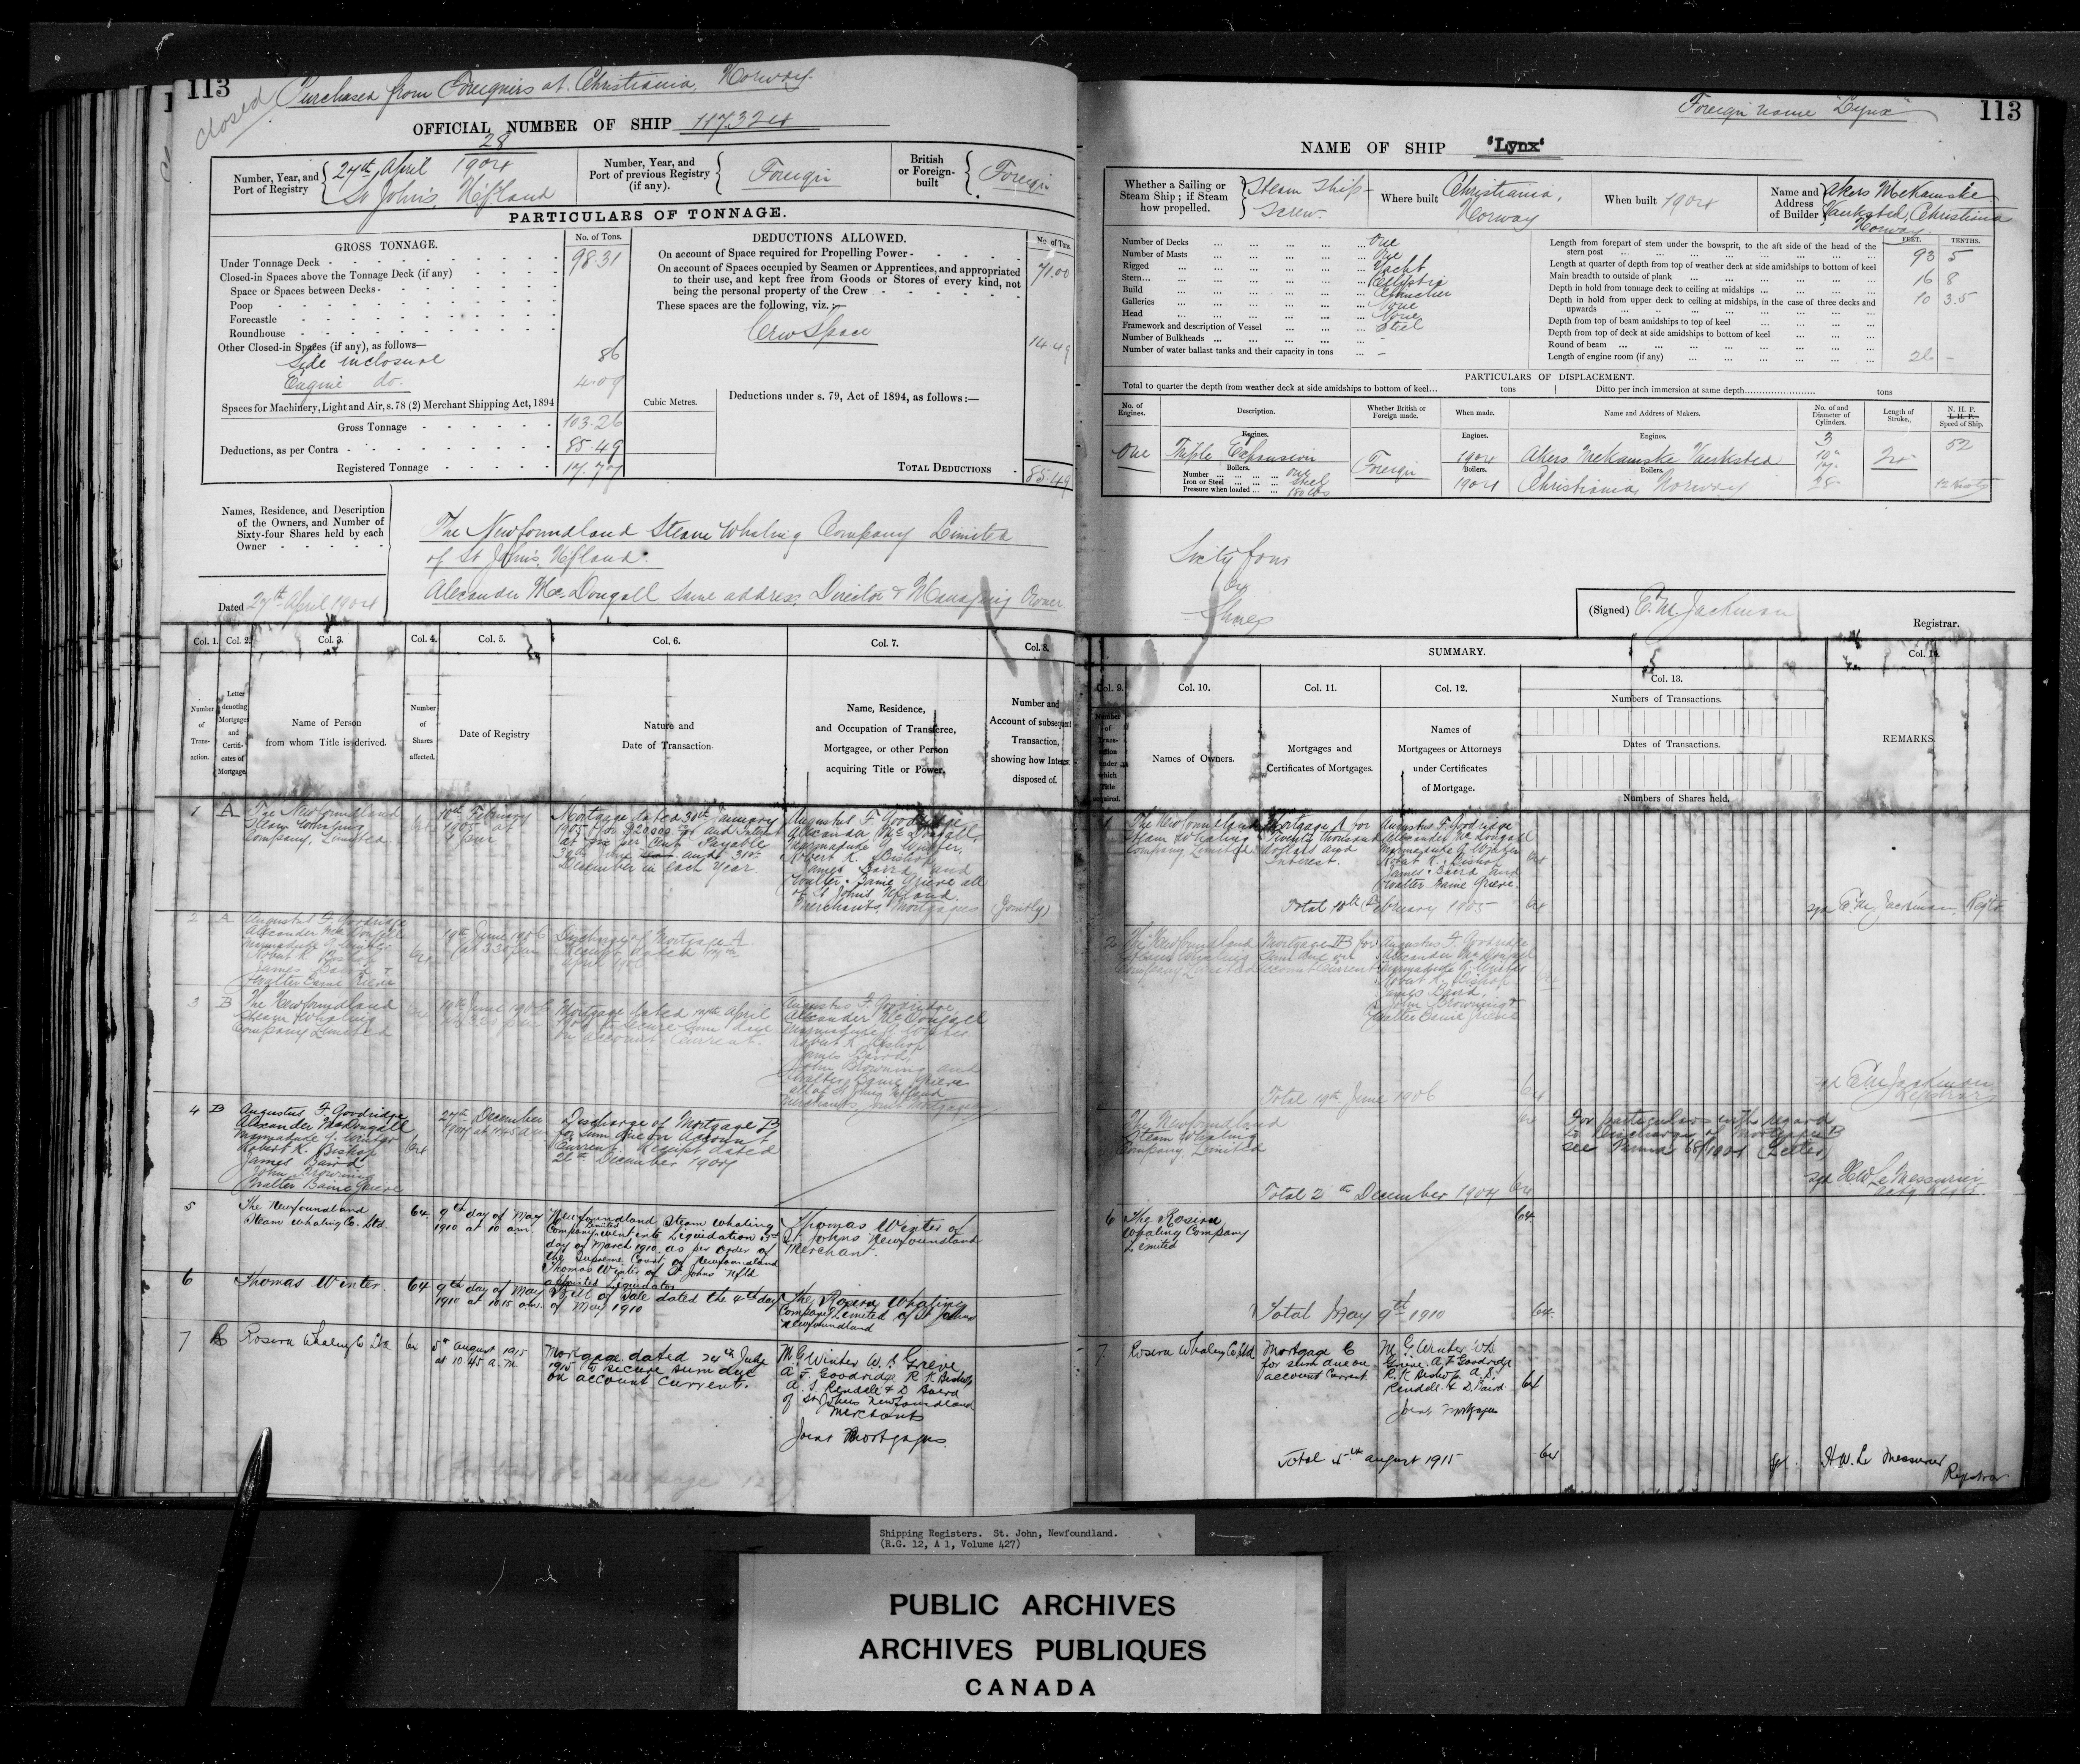 113
closed
Purchased from Foreigners at Christiania, Norway.
OFFICIAL NUMBER OF SHIP 117324
Number, Year, and Port of Registry
28
27th April 1904
St John's, N'f'land
Number, Year, and Port of previous Registry (if any).
Foreign
British or Foreign-built
Foreign
PARTICULARS OF TONNAGE.
GROSS TONNAGE.
No. of Tons.
Under Tonnage Deck 98.31
Closed-in Spaces above the Tonnage Deck (if any)
Space or Spaces between Decks
Poop
Forecastle
Roundhouse
Other Closed-in Spaces (if any), as follows—
Side inclosure 86
Engine do. 4.09
Spaces for Machinery, Light and Air, s. 78 (2) Merchant Shipping Act, 1894
Gross Tonnage 103.26
Deductions, as per Contra 85.49
Registered Tonnage 17.77
DEDUCTIONS ALLOWED.
No. of Tons.
On account of Space required for Propelling Power 71.00
On account of Spaces occupied by Seamen or Apprentices, and appropriated
to their use, and kept free from Goods or Stores of every kind, not
being the personal property of the Crew
These spaces are the following, viz.:—
Crew Space 14.49
Cubic Metres.
Deductions under s. 79, Act of 1894, as follows:—
TOTAL DEDUCTIONS 85.49
Names, Residence, and Description
of the Owners, and Number of
Sixty-four Shares held by each
Owner
The Newfoundland Steam Whaling Company Limited
of St John's, N'f'land.
Alexander McDougall same address, Director & Managing Owner.
Dated 27th April 1904
Col. 1. Col. 2. Col. 3. Col. 4. Col. 5. Col. 6. Col. 7. Col. 8.
Number of Transaction.
Letter denoting Mortgages and Certificates of Mortgage.
Name of Person
from whom Title is derived.
Number of Shares affected.
Date of Registry
Nature and
Date of Transaction.
Name, Residence,
and Occupation of Transferee,
Mortgagee, or other Person
acquiring Title or Power.
Number and
Account of subsequent
Transaction,
showing how Interest
disposed of.
1 A The Newfoundland
Steam Whaling
Company, Limited.
64
10th February
1905 at
1 pm
Mortgage dated 30th January
1905 for $20,000.00 and Interest
at five per Cent Payable
30th June and 31st
December in Each Year.
Augustus F. Goodridge
Alexander McDougall,
Marmaduke G. Winter,
Robert K. Bishop
James Baird and
Walter Baine Grieve all
of St John's Nfland.
Merchants, Mortgagees (Jointly)
2 A Augustus F. Goodridge
Alexander McDougall
Marmaduke G. Winter
Robert K. Bishop
James Baird &
Walter Baine Grieve
64
19th June 1906
at 3.30 pm
Discharge of Mortgage A
Receipt dated
April 1906
3 B The Newfoundland
Steam Whaling
Company Limited
64
19th June 1906
Mortgage dated April
1906 to secure sum due
on account Current.
Augustus F. Goodridge
Alexander McDougall
Marmaduke G. Winter
Robert K. Bishop
James Baird,
John Browning and
Walter Baine Grieve
all of St Johns Nfland
Merchants Joint Mortgagees
4 B Augustus F. Goodridge
Alexander McDougall
Marmaduke G. Winter
Robert K. Bishop
James Baird
John Browning
Walter Baine Grieve
64
27th December
1907 at 11.45 a.m.
Discharge of Mortgage B
for sum due on Account
Current. Receipt dated
26th December 1907
5 The Newfoundland
Steam Whaling Co. Ltd.
64. 9th day of May
1910 at 10 am.
Newfoundland Steam Whaling
Company Limited went into Liquidation
day of March 1910, as per order of
the Supreme Court of Newfoundland
Thomas Winter of St Johns Nfld
appointed Liquidator
Thomas Winter of
St Johns Newfoundland
Merchant.
6 Thomas Winter. 64 9th day of May
1910 at 10.15 am.
Bill of Sale dated the 4th day
of May 1910
The Rosiru Whaling
Company Limited of St Johns
Newfoundland
7 Rosiru Whaling Co Ltd 64 5th August 1915
at 10.45 a.m.
Mortgage dated 24th July
1915 to secure sum due
on account current.
M. G. Winter W. B. Grieve
A. F. Goodridge R K Bishop
A. S. Rendell & D. Baird
of St Johns Newfoundland
Merchants
Joint Mortgagees.
Foreign name "Lynx"
113
NAME OF SHIP 'Lynx'
Whether a Sailing or
Steam Ship; if Steam
how propelled.
Steam Ship
Screw.
Where built
Christiania,
Norway
When built 1904
Name and
Address
of Builder
Akers Mekaniske
Vaerksted, Christiania
Norway
Number of Decks One
Number of Masts One
Rigged Yacht
Stern Elliptic
Build Clincher
Galleries None
Head None
Framework and description of Vessel Steel
Number of Bulkheads -
Number of water ballast tanks and their capacity in tons -
FEET. TENTHS.
Length from forepart of stem under the bowsprit, to the aft side of the head of the
stern post 93 5
Length at quarter of depth from top of weather deck at side amidships to bottom of keel
Main breadth to outside of plank 16 8
Depth in hold from tonnage deck to ceiling at midships 10 3.5
Depth in hold from upper deck to ceiling at midships, in the case of three decks and
upwards
Depth from top of beam amidships to top of keel
Depth from top of deck at side amidships to bottom of keel
Round of beam
Length of engine room (if any) 26 -
PARTICULARS OF DISPLACEMENT.
Total to quarter the depth from weather deck at side amidships to bottom of keel... tons Ditto per inch immersion at same depth tons
No. of Engines. Description. Whether British or Foreign made. When made. Name and Address of Makers. No. of and Diameter of Cylinders. Length of Stroke. N. H. P. I. H. P. Speed of Ship.
Engines. Engines. Engines.
One Triple Expansion Foreign 1904 Akers Mekaniske Vaerksted 3 52
Boilers. Boilers. Boilers.
Number One
Iron or Steel Steel
Pressure when loaded 180 lbs
1904 Christiania, Norway
10"
17"
28"
12 Knots
Sixty four
64
Shares
(Signed) C. M. Jackman
Registrar.
SUMMARY.
Col. 9. Col. 10. Col. 11. Col. 12. Col. 13. Col. 14.
Number of Transaction under which Title acquired.
Names of Owners.
Mortgages and
Certificates of Mortgages.
Names of
Mortgagees or Attorneys
under Certificates
of Mortgage.
Numbers of Transactions.
Dates of Transactions.
Numbers of Shares held.
REMARKS.
1 The Newfoundland
Steam Whaling
Company, Limited.
Mortgage A for
Twenty thousand
dollars and
Interest.
Augustus F. Goodridge
Alexander McDougall
Marmaduke G. Winter
Robert K. Bishop
James Baird and
Walter Baine Grieve.
64
Total 10th February 1905 64
sgd C. M. Jackman, Regr
2 The Newfoundland
Steam Whaling
Company Limited
Mortgage B for
sum due on
account Current
Augustus F. Goodridge
Alexander McDougall
Marmaduke G. Winter
Robert K. Bishop
James Baird,
John Browning &
Walter Baine Grieve
64
Total 19th June 1906 64
sgd C M Jackman
Registrar
The Newfoundland
Steam Whaling
Company, Limited
64
For particulars with regard
to Discharge of Mortgage B
see (Letter)
Total December 1907 64
sgd H. W. LeMessurier
actg Regr.
6 The Rosiru
Whaling Company
Limited
64
Total May 9th 1910 64.
7. Rosiru Whaling Co. Ltd
Mortgage C
for sum due on
account Current.
M. G. Winter W B
Grieve. A F Goodridge
R. K Bishop A. S.
Rendell & D. Baird
Joint Mortgagees
64
Total 5th august 1915 64
H. W. Le Messurier
Registrar
Shipping Registers. St. John, Newfoundland.
(R.G. 12, A 1, Volume 427)
PUBLIC ARCHIVES
ARCHIVES PUBLIQUES
CANADA